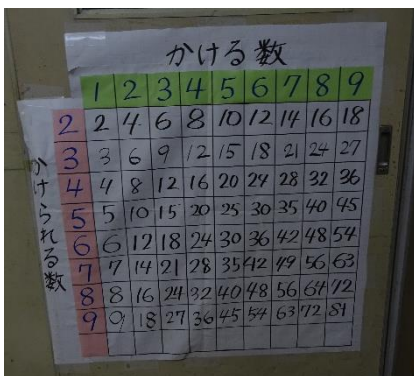 かける数
1 2 3 4 5 6 7 8 9
かけられる数
2 2 4 6 8 10 12 14 16 18
3 3 6 9 12 15 18 21 24 27
4 4 8 12 16 20 24 28 32 36
5 5 10 15 20 25 30 35 40 45
6 6 12 18 24 30 36 42 48 54
7 7 14 21 28 35 42 49 56 63
8 8 16 24 32 40 48 56 64 72
9 9 18 27 36 45 54 63 72 81